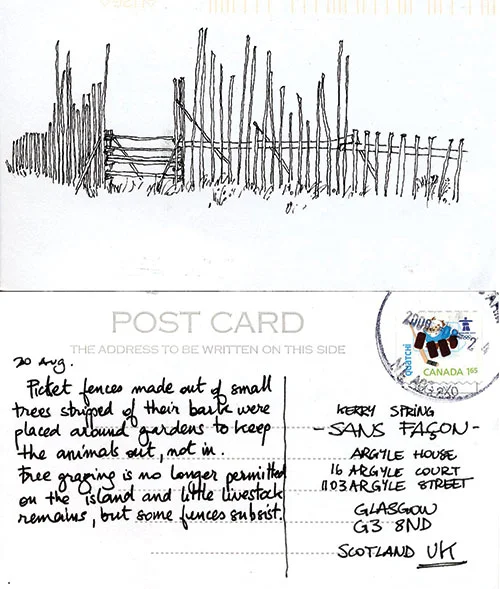 POST CARD
THE ADDRESS TO BE WRITTEN ON THIS SIDE
20 Aug.
Picket fences made out of small
trees stripped of their bark were
placed around gardens to keep
the animals out, not in.
Free grazing is no longer permitted
on the island and little livestock
remains, but some fences subsist.
2009
24
QUATCHI
CANADA 165
KERRY SPRING
-SANS FAÇON-
ARGYLE HOUSE
16 ARGYLE COURT
1103 ARGYLE STREET
GLASGOW
G3 8ND
SCOTLAND UK